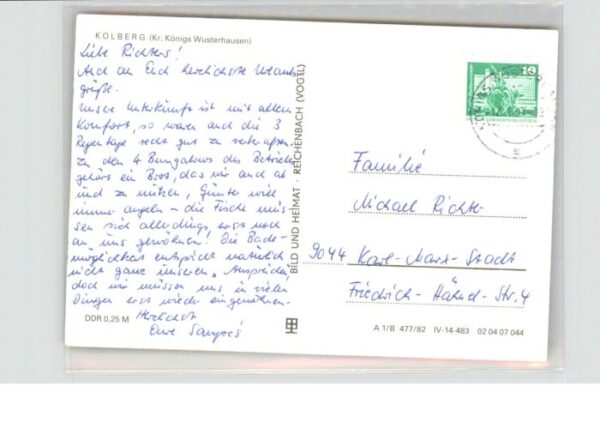 KOLBERG (Kr. Königs Wusterhausen)
Liebe Richters!
Auch an Euch herzlichste Urlaubs
grüße.
Unsere Unterkunft ist mit allem
Komfort, so waren auch die 3
Regentage recht gut zu
Zu den 4 Bungalows des Betriebs
gehört ein Boot, das wir auch ab
und zu nutzen, Günter will
immer angeln – die Fische müs-
sen sich allerdings erst noch
an uns gewöhnen. Die Bade-
möglichkeit entspricht natürlich
nicht ganz unseren Ansprüchen,
doch wir müssen uns in vielen
Dingen erst wieder eingewöhnen.
Herzlichst
Eure
DDR 0,25 M
BILD UND HEIMAT · REICHENBACH (VOGTL)
10
Familie
Michael Richter
9044 Karl-Marx-Stadt
Friedrich-Hähnel-Str. 4
A 1/B 477/82 IV-14-483 02 04 07 044